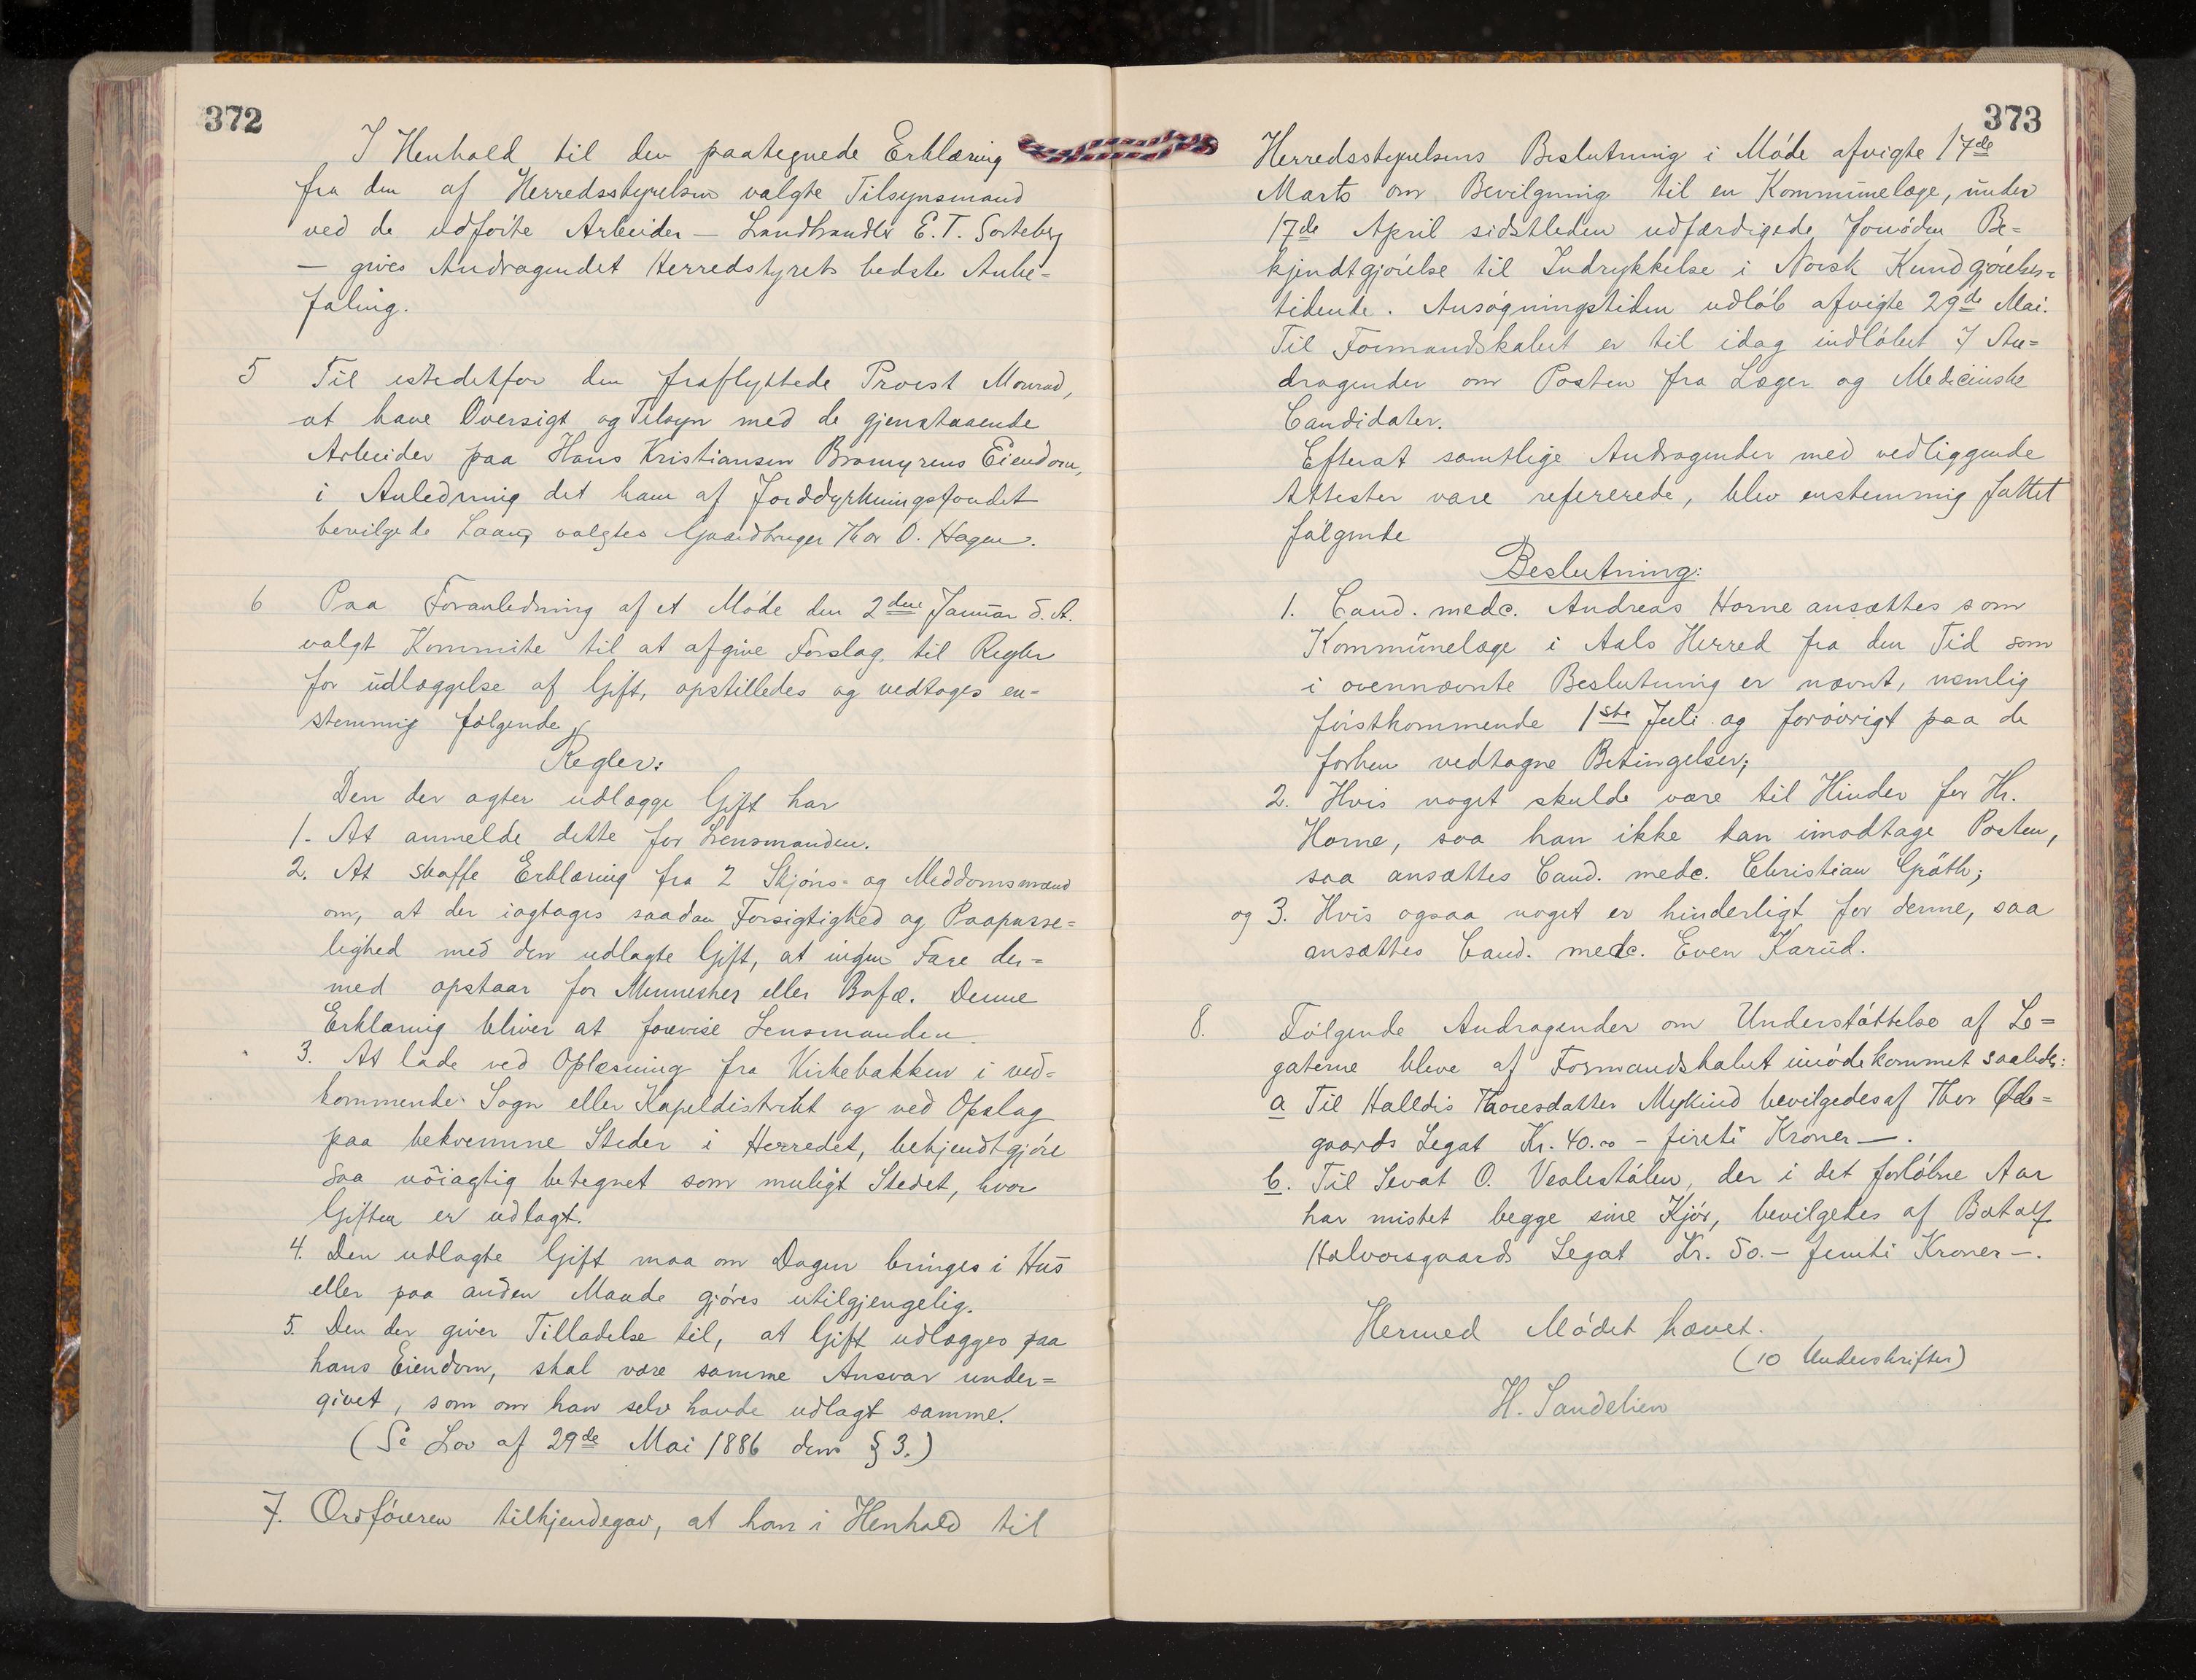 372
I Henhold til den paategnede Erklæring
fra den af Herredsstyrelsen valgte Tilsynsmand
ved de udførte Arbeider — Landhandler E. T. Sorteberg
— gives Andragendet Herredstyrets bedste Anbe=
faling.
5 Til istedetfor den fraflyttede Provst Monrad,
at have Oversigt og Tilsyn med de gjenstaaende
Arbeider paa Hans Kristiansen Bromyrens Eiendom,
i Anledning det ham af Jorddyrkningsfondet
bevilgede Laan, valgtes Gaardbruger Thor O. Hagen.
6 Paa Foranledning af et Møde den 2den Januar d. A.
valgt Kommite til at afgive Forslag til Regler
for udlæggelse af Gift, opstilledes og vedtoges en=
stemmig følgende
Regler:
Den der agter udlægge Gift har
1. At anmelde dette for Lensmanden.
2. At skaffe Erklæring fra 2 Skjøns- og Meddomsmænd
om, at der iagtages saadan Forsigtighed og Paapasse=
lighed med den udlagte Gift, at ingen Fare der=
med opstaar for Mennesker eller Bufæ. Denne
Erklæring bliver at forevise Lensmanden.
3. At lade ved Oplæsning fra Kirkebakken i ved=
kommende Sogn eller Kapeldistrikt og ved Opslag
paa bekvemme Steder i Herredet, bekjendtgjøre
saa nöiagtig betegnet som muligt Stedet, hvor
Giften er udlagt.
4. Den udlagte Gift maa om Dagen bringes i Hus
eller paa anden Maade gjøres utilgjengelig.
5. Den der giver Tilladelse til, at Gift udlægges paa
hans Eiendom, skal være samme Ansvar under=
givet, som om han selv havde udlagt samme.
(Se Lov af 29de Mai 1886 dens § 3.)
7. Ordføreren tilkjendegav, at han i Henhold til
373
Herredsstyrelsens Beslutning i Møde afvigte 17de
Marts om Bevilgning til en Kommunelæge, under
17de April sidstleden udfærdigede fornøden Be=
kjendtgjørelse til Indrykkelse i Norsk Kundgjørelses=
tidende. Ansøgningstiden udløb afvigte 29de Mai.
Til Formandskabet er til idag indløbet 7 An=
dragender om Posten fra Læger og Medicinske
Candidater.
Efterat samtlige Andragender med vedliggende
Attester vare refererede, blev enstemmig fattet
følgende
Beslutning:
1. Cand. medc. Andreas Horne ansættes som
Kommunelæge i Aals Herred fra den Tid som
i ovennævnte Beslutning er nævnt, nemlig
førstkommende 1ste Juli og forøvrigt paa de
forhen vedtagne Betingelser;
2. Hvis noget skulde være til Hinder for Hr.
Horne, saa han ikke kan imodtage Posten,
saa ansættes Cand. medc. Christian Gräth;
og 3. Hvis ogsaa noget er hinderligt for denne, saa
ansættes Cand. medc. Even Karud.
8. Følgende Andragender om Understøttelse af Le=
gaterne bleve af Formandskabet imødekommet saaledes:
a Til Halldis Thoresdatter Myking bevilgedes af Thor Øde=
gaards Legat Kr. 40.00 – fireti Kroner —.
b. Til Sevat O. Veslestølen, der i det forløbne Aar
har mistet begge sine Kjør, bevilgedes af Botolf
Halvorsgaards Legat Kr. 50.— femti Kroner —.
Hermed Mødet hævet.
(10 Underskrifter)
H. Sandelien